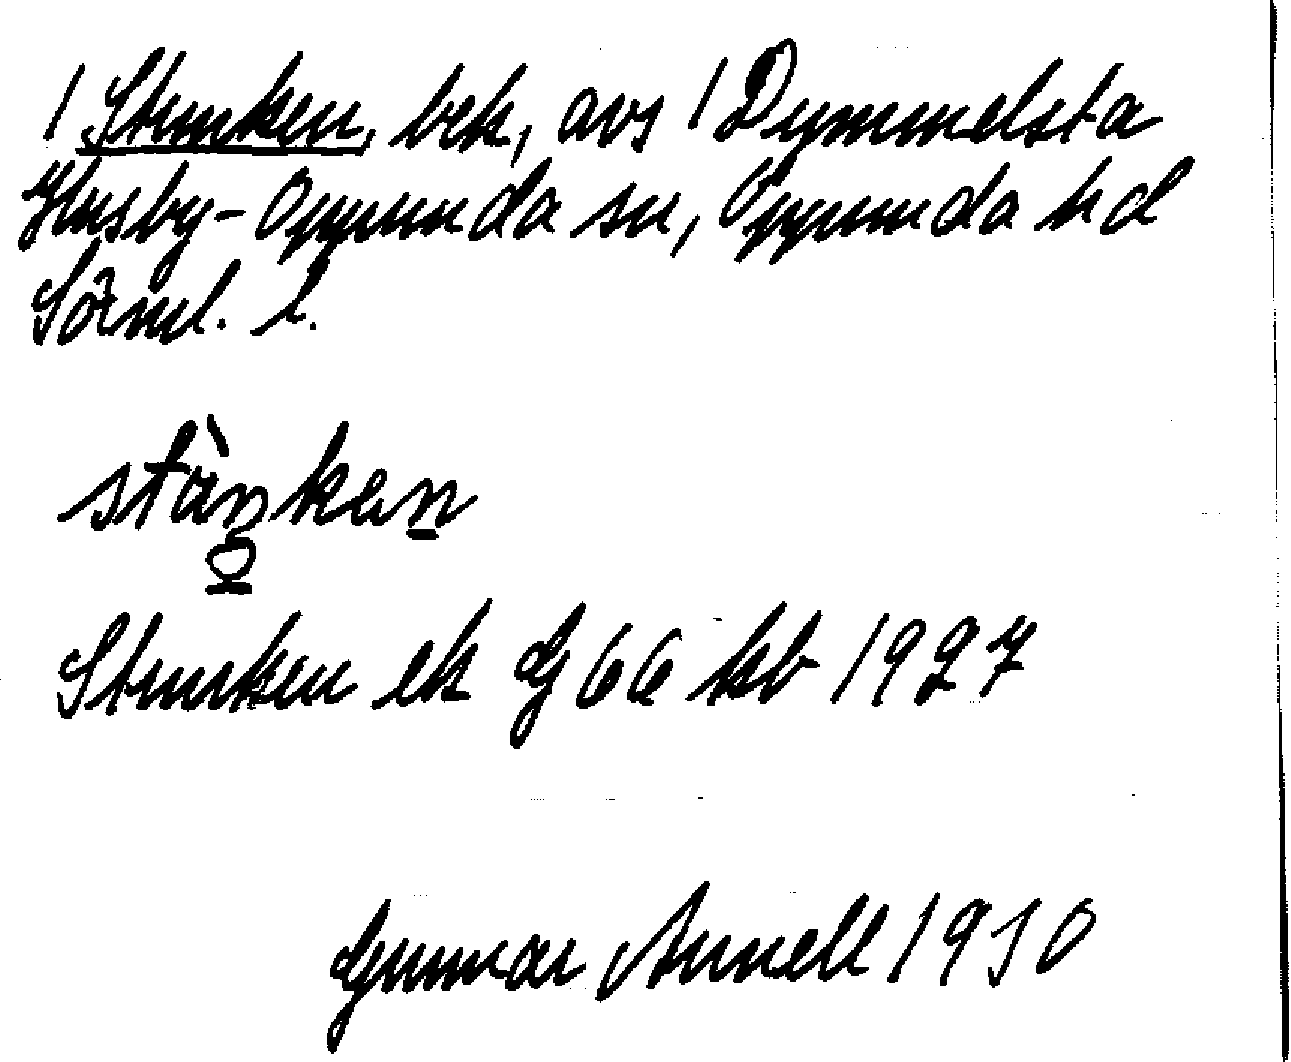 / Strunken, bek, avs / Dymmelsta
Husby-Oppunda sn, Oppunda hd
Sörml. l.
Strunken ek G 66 kb 1927
Gunnar Annell 1930